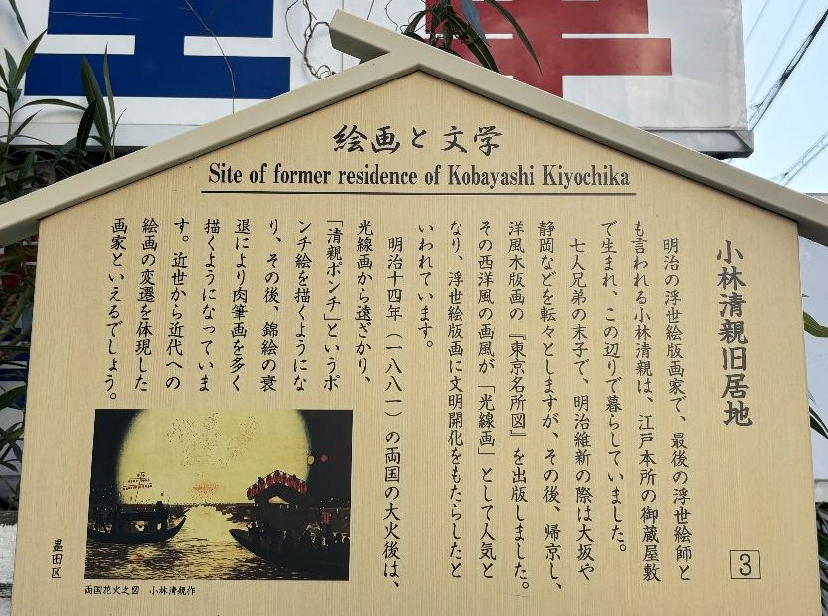 絵画と文学
Site of former residence of Kobayashi Kiyochika
小林清親旧居地
3
明治の浮世絵版画家で、最後の浮世絵師と
も言われる小林清親は、江戸本所の御蔵屋敷
で生まれ、この辺りで暮らしていました。
七人兄弟の末子で、明治維新の際は大坂や
静岡などを転々としますが、その後、帰京し、
洋風木版画の『東京名所図』を出版しました。
その西洋風の画風が「光線画」として人気と
なり、浮世絵版画に文明開化をもたらしたと
いわれています。
明治十四年（一八八一）の両国の大火後は、
光線画から遠ざかり、
「清親ポンチ」というポ
ンチ絵を描くようにな
り、その後、錦絵の衰
退により肉筆画を多く
描くようになっていま
す。近世から近代への
絵画の変遷を体現した
画家といえるでしょう。
両国花火之図　小林清親作
墨田区